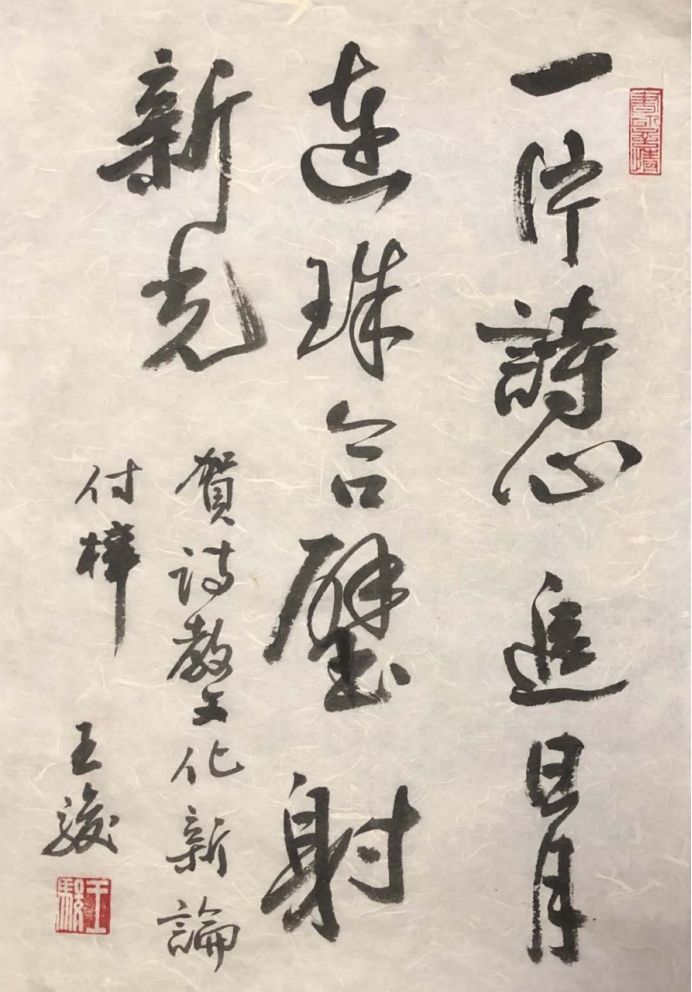 一片詩心追日月
連珠合璧射
新光
賀詩教文化新論
付梓
王駿